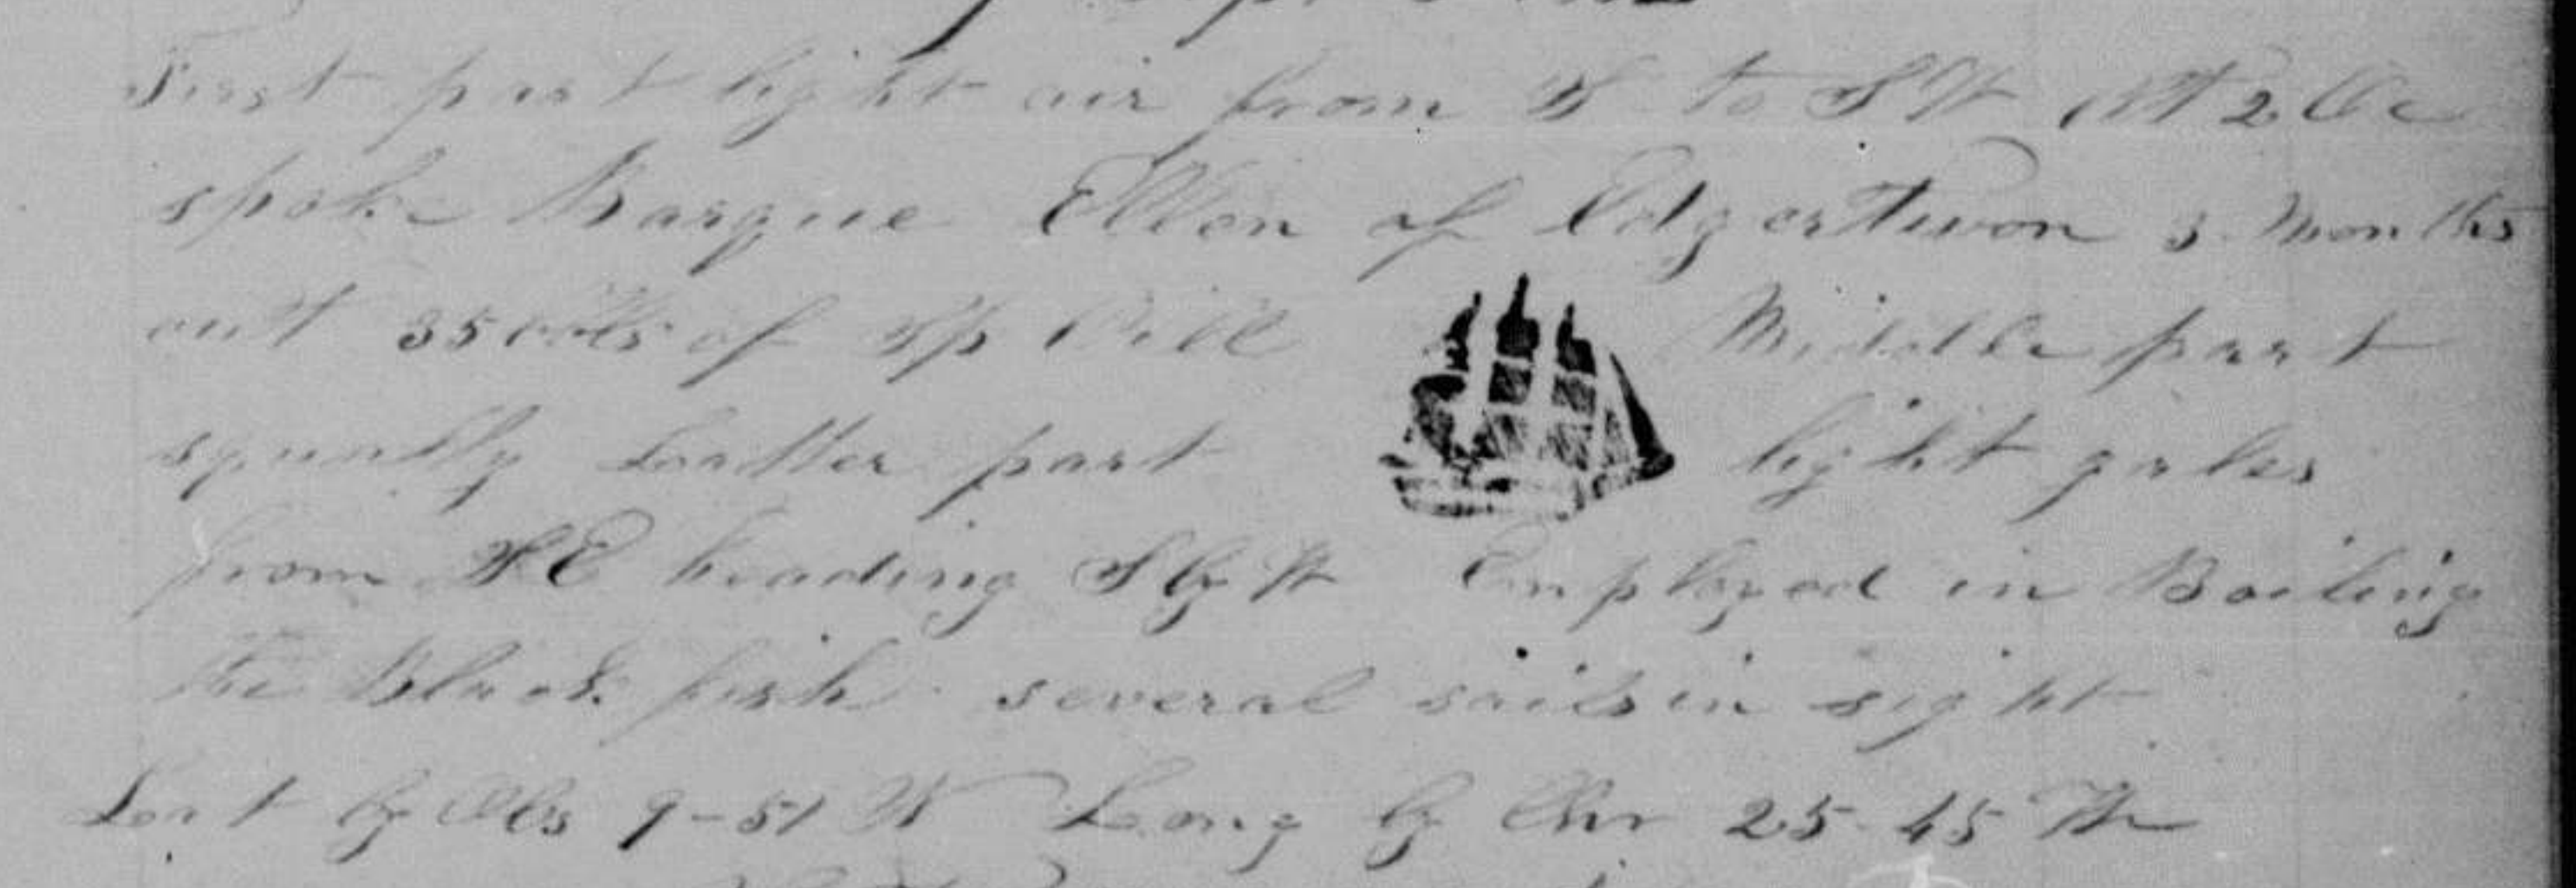 First part light air from S to SW At 2 Oc
spoke Barque Ellen of Edgertwon 3 Months
out 35 bbls of Sp Oill Middle part
squally Lattter part light gales
from SE heading S by W Employed in Boiling
the Black fish several sails in sight
Lat by Obs 9-51 N Long by Chr 25-45 W